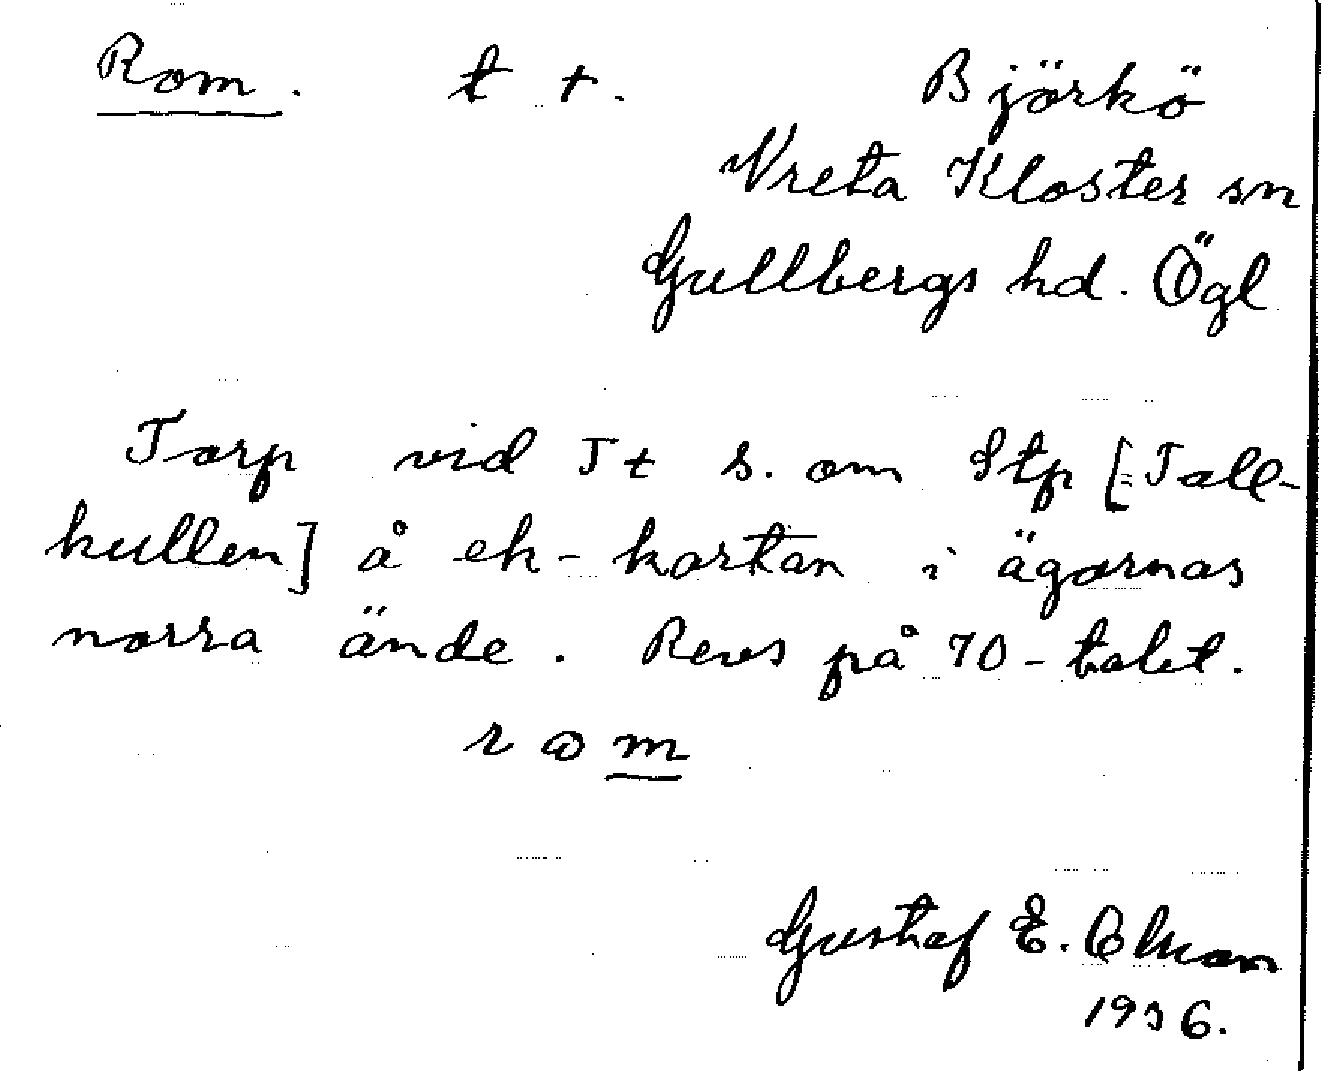 Rom. t t. Björkö
Vreta Kloster sn
Gullbergs hd. Ögl
Torp vid Tt s. om Stp [Tall-
kullen] å ek-kartan i ägornas
norra ände. Revs på 70-talet.
rom
Gustaf E. Ohman
1936.